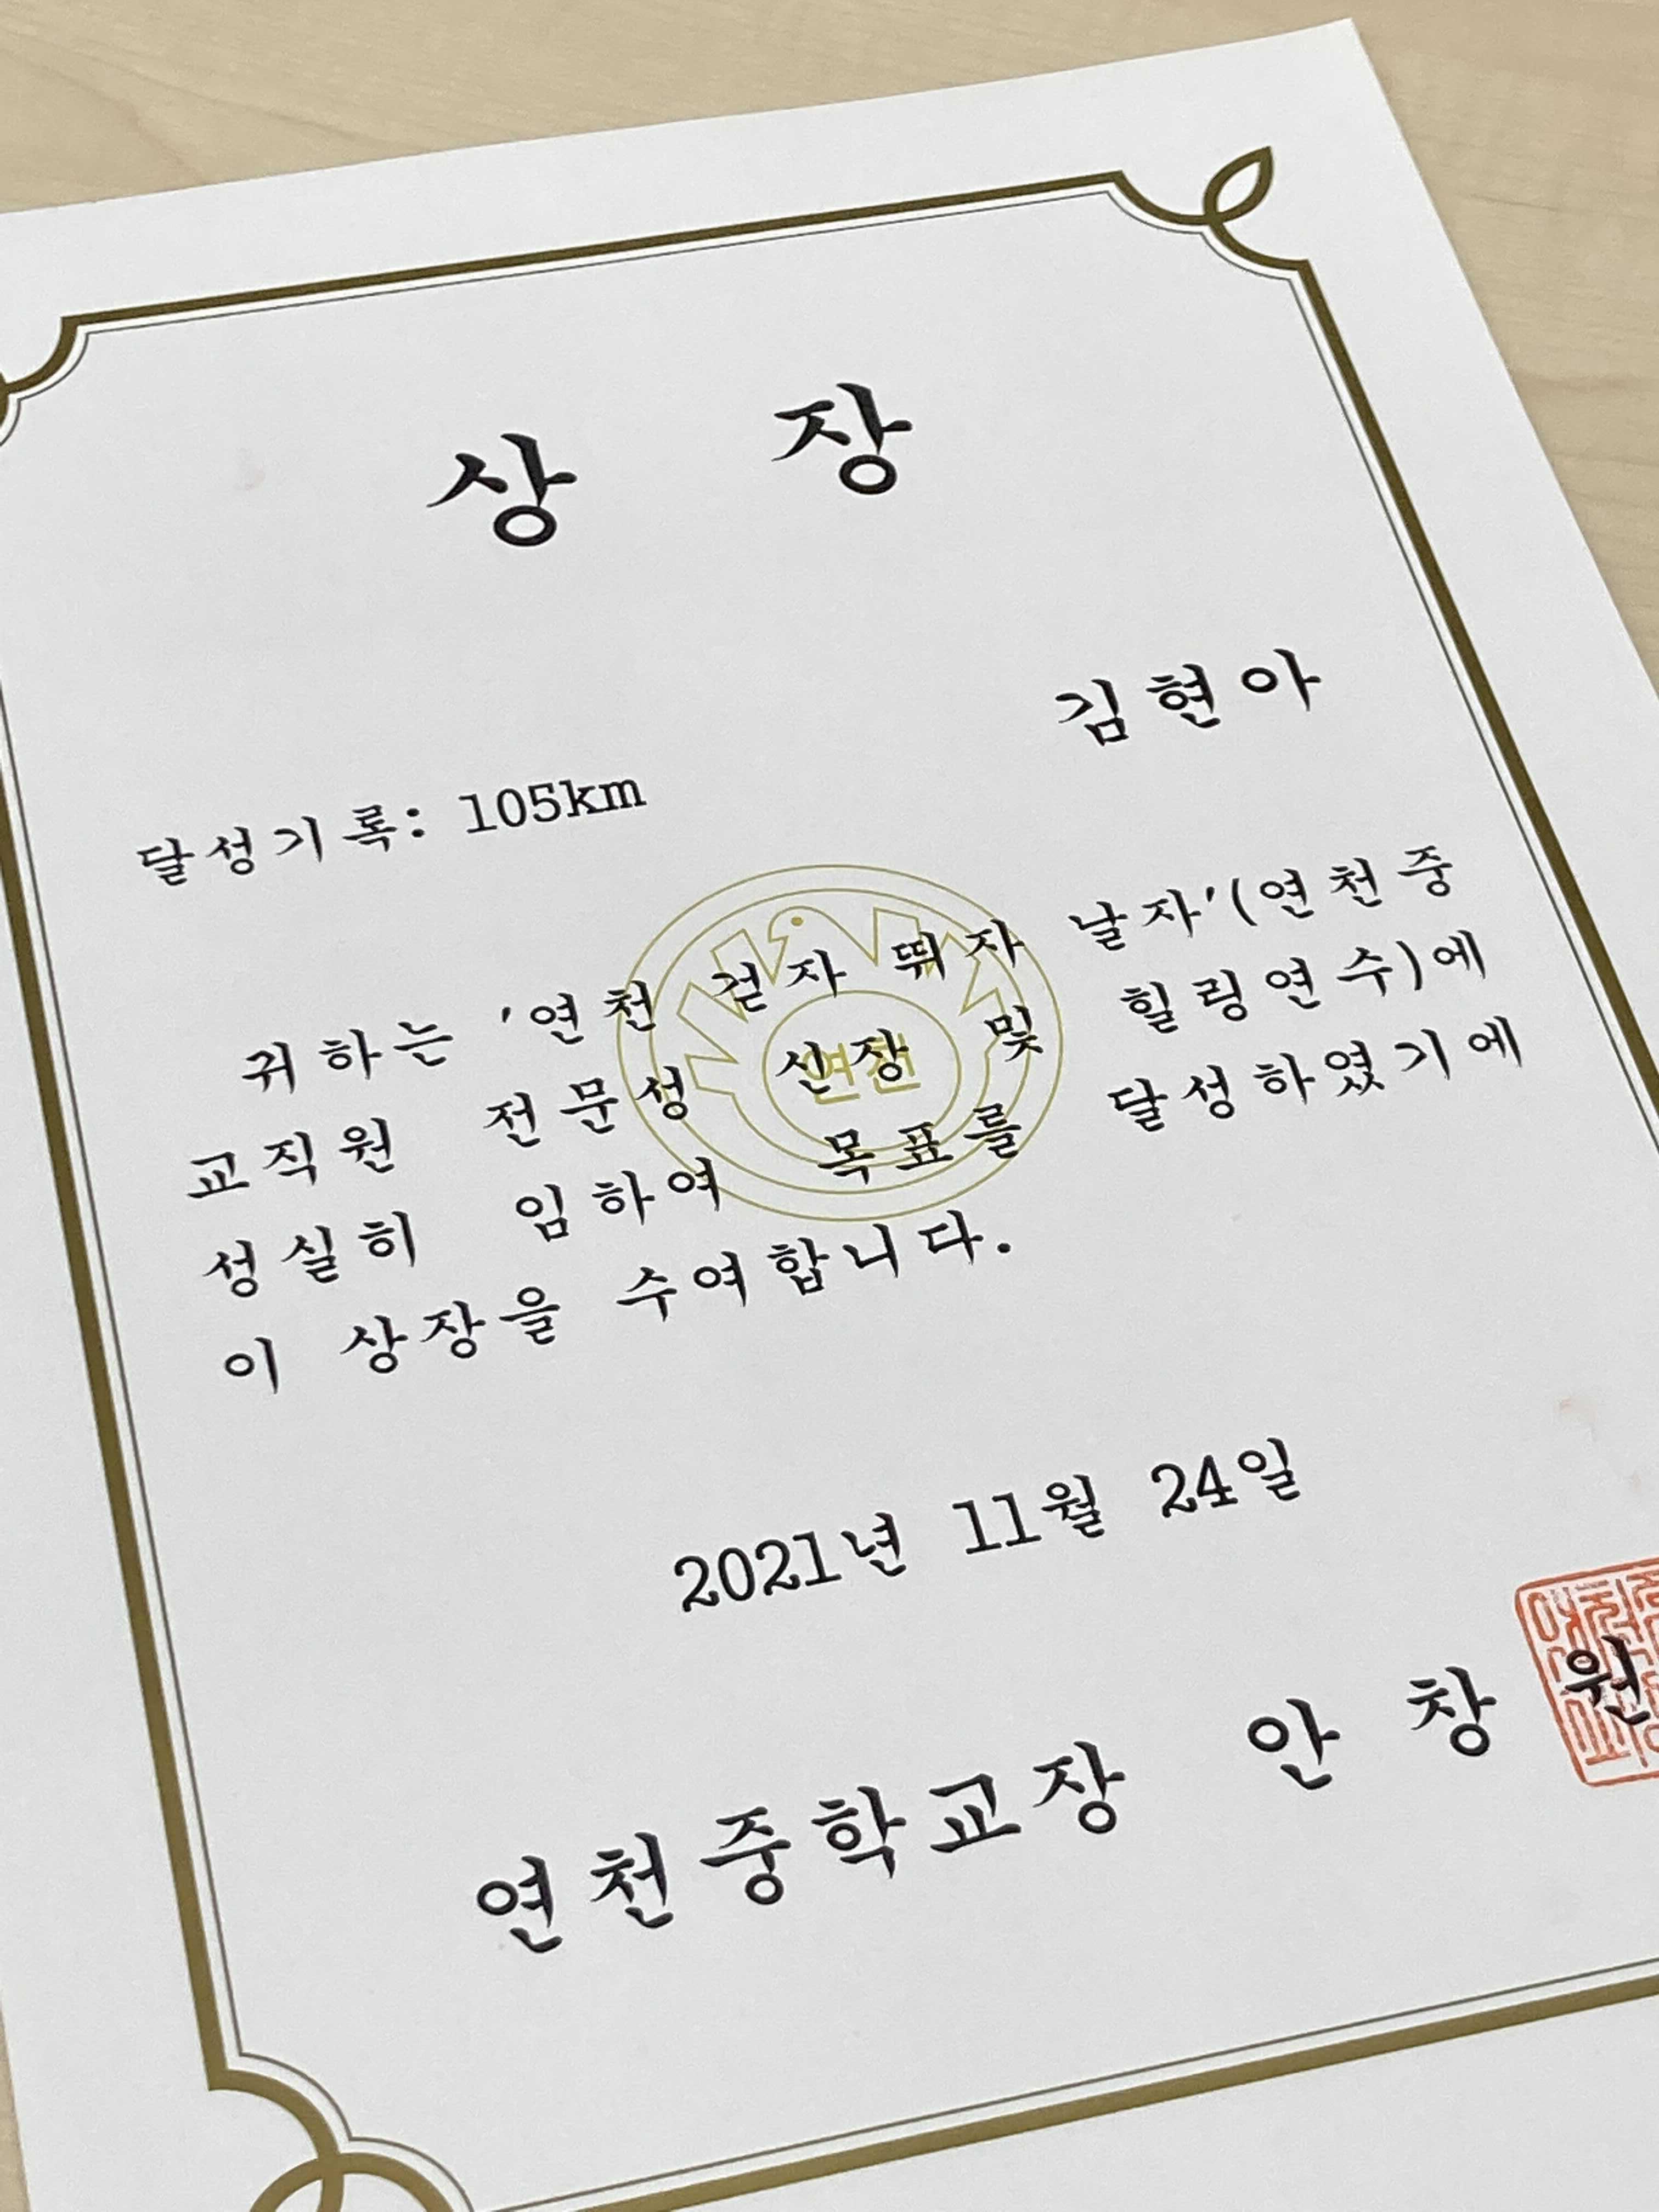 상 장
김현아
달성기록: 105km
귀하는 '연천 걷자 뛰자 날자'(연천중
교직원 전문성 신장 및 힐링연수)에
성실히 임하여 목표를 달성하였기에
이 상장을 수여합니다.
연천
2021년 11월 24일
연천중학교장 안 창 원